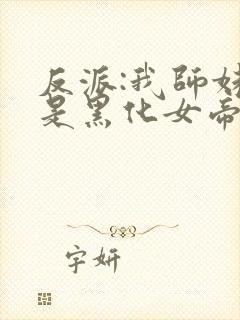 反派:我師姊
是黑化女帝
字妍